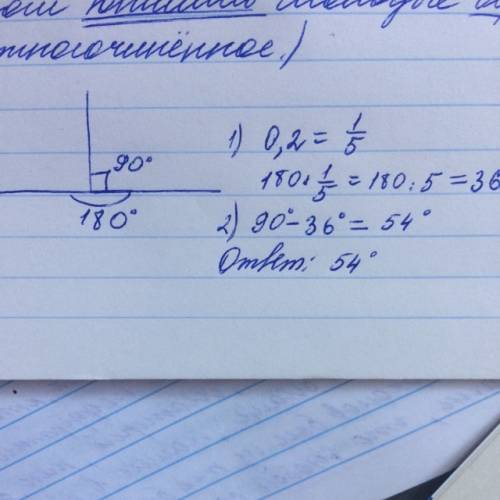 ногочинённое.)
90°
180°
1) 0,2 = 1/5
180 · 1/5 = 180 : 5 = 36
2) 90° - 36° = 54°
Ответ: 54°